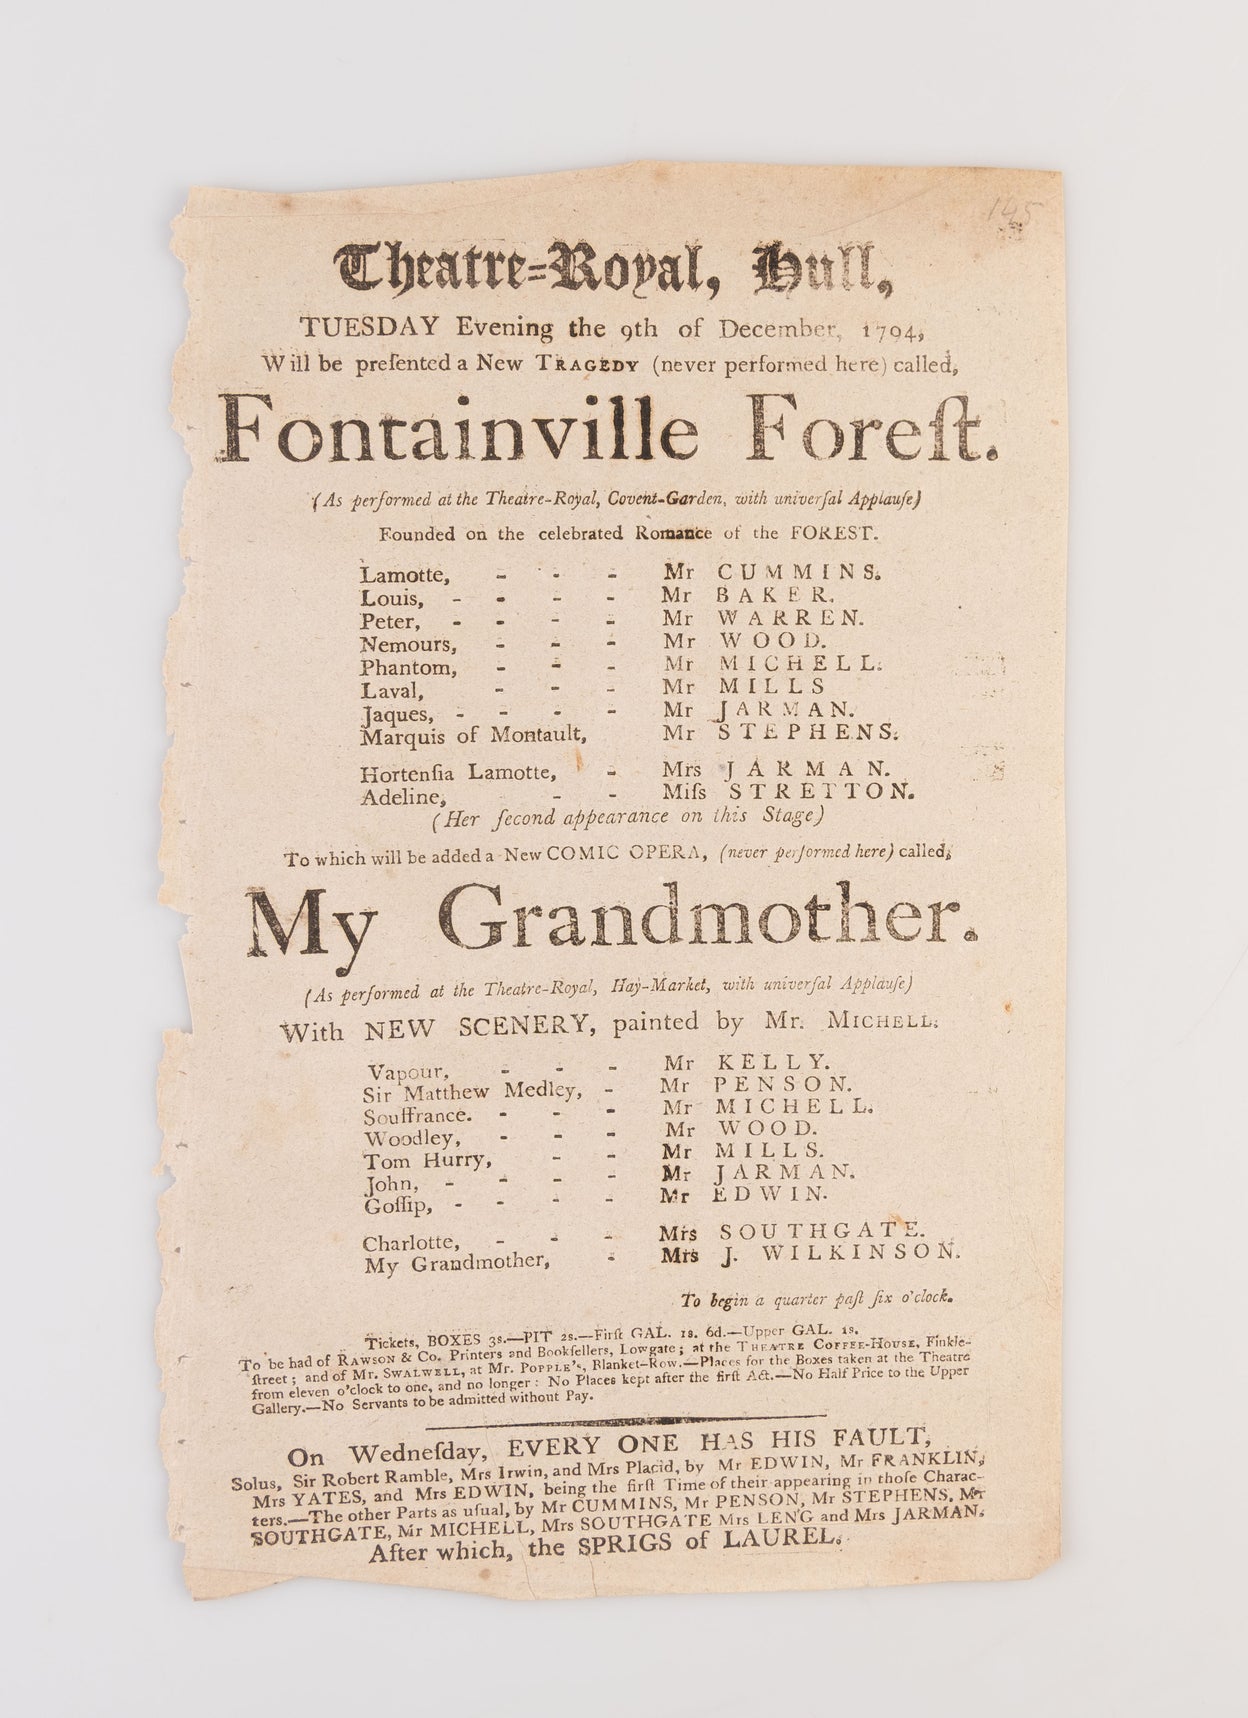 145
Theatre-Royal, Hull,
TUESDAY Evening the 9th of December, 1794,
Will be preſented a New TRAGEDY (never performed here) called,
Fontainville Foreſt.
(As performed at the Theatre-Royal, Covent-Garden, with univerſal Applauſe)
Founded on the celebrated Romance of the FOREST.
Lamotte, - - - Mr CUMMINS.
Louis, - - - - Mr BAKER.
Peter, - - - - Mr WARREN.
Nemours, - - - Mr WOOD.
Phantom, - - - Mr MICHELL.
Laval, - - - Mr MILLS
Jaques, - - - - Mr JARMAN.
Marquis of Montault, Mr STEPHENS.
Hortenſia Lamotte, - Mrs JARMAN.
Adeline, - - Miſs STRETTON.
(Her ſecond appearance on this Stage)
To which will be added a New COMIC OPERA, (never performed here) called,
My Grandmother.
(As performed at the Theatre-Royal, Hay-Market, with univerſal Applauſe)
With NEW SCENERY, painted by Mr. MICHELL.
Vapour, - - - Mr KELLY.
Sir Matthew Medley, - Mr PENSON.
Souffrance. - - - Mr MICHELL.
Woodley, - - - Mr WOOD.
Tom Hurry, - - Mr MILLS.
John, - - - - Mr JARMAN.
Goſſip, - - - - Mr EDWIN.
Charlotte, - - - Mrs SOUTHGATE.
My Grandmother, - Mrs J. WILKINSON.
To begin a quarter paſt ſix o'clock.
Tickets, BOXES 3s.—PIT 2s.—Firſt GAL. 1s. 6d.—Upper GAL. 1s.
To be had of RAWSON & Co. Printers and Bookſellers, Lowgate; at the THEATRE COFFEE-HOUSE, Finkle-
ſtreet; and of Mr. SWALWELL, at Mr. POPPLE's, Blanket-Row.—Places for the Boxes taken at the Theatre
from eleven o'clock to one, and no longer: No Places kept after the firſt Act.—No Half Price to the Upper
Gallery.—No Servants to be admitted without Pay.
On Wedneſday, EVERY ONE HAS HIS FAULT,
Solus, Sir Robert Ramble, Mrs Irwin, and Mrs Placid, by Mr EDWIN, Mr FRANKLIN,
Mrs YATES, and Mrs EDWIN, being the firſt Time of their appearing in thoſe Charac-
ters.—The other Parts as uſual, by Mr CUMMINS, Mr PENSON, Mr STEPHENS, Mr
SOUTHGATE, Mr MICHELL, Mrs SOUTHGATE Mrs LENG and Mrs JARMAN.
After which, the SPRIGS of LAUREL.